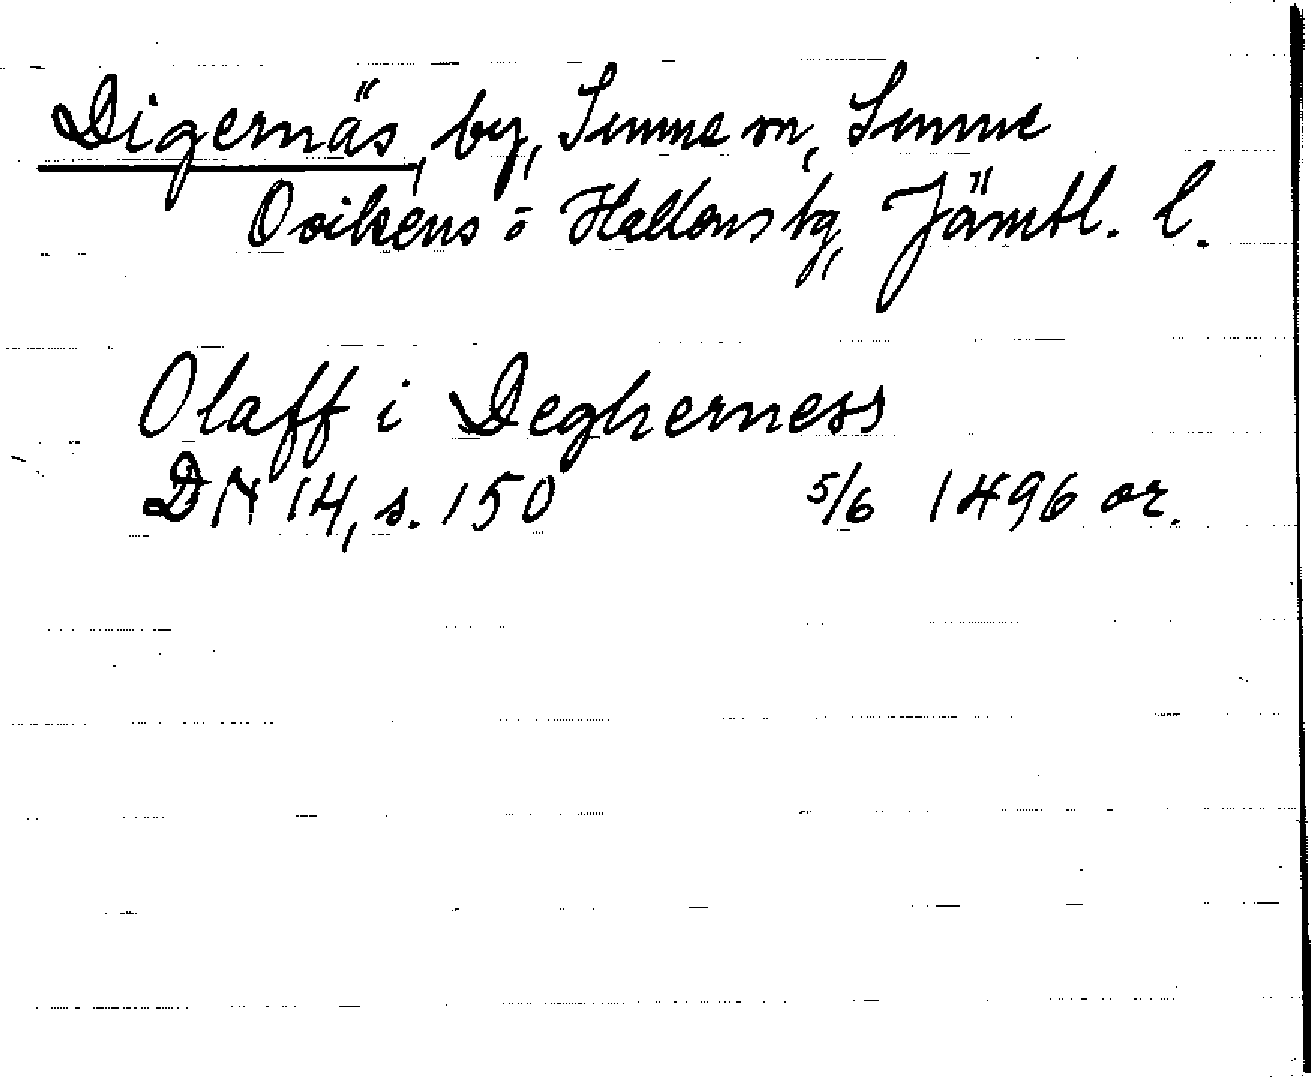 Digernäs, by, Sunne sn, Sunne
Ovikens o Hallens tg, Jämtl. l.
Olaff i Degherness
DN 14, s. 150 5/6 1496 or.